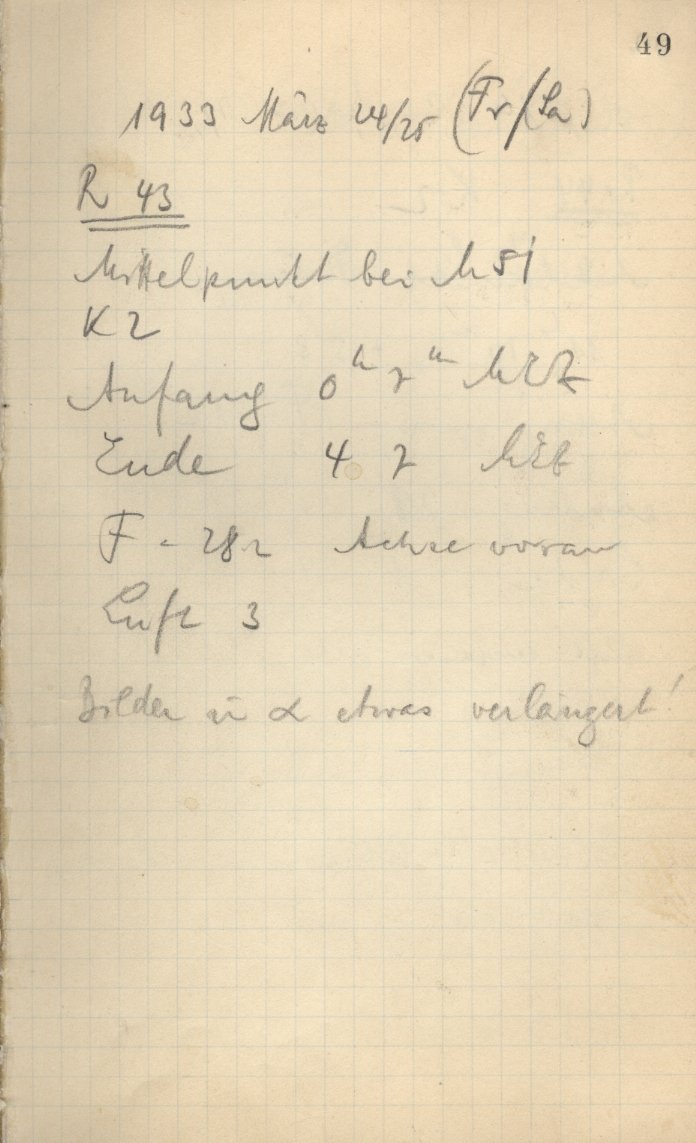 49
1933 März 24/25 (Fr/Sa)
R 43
Mittelpunkt bei M 51
K 2
Anfang 0ʰ 7ᵐ MEZ
Ende 4 7 MEZ
F = 282 Achse voran
Luft 3
Bilder in α etwas verlängert!